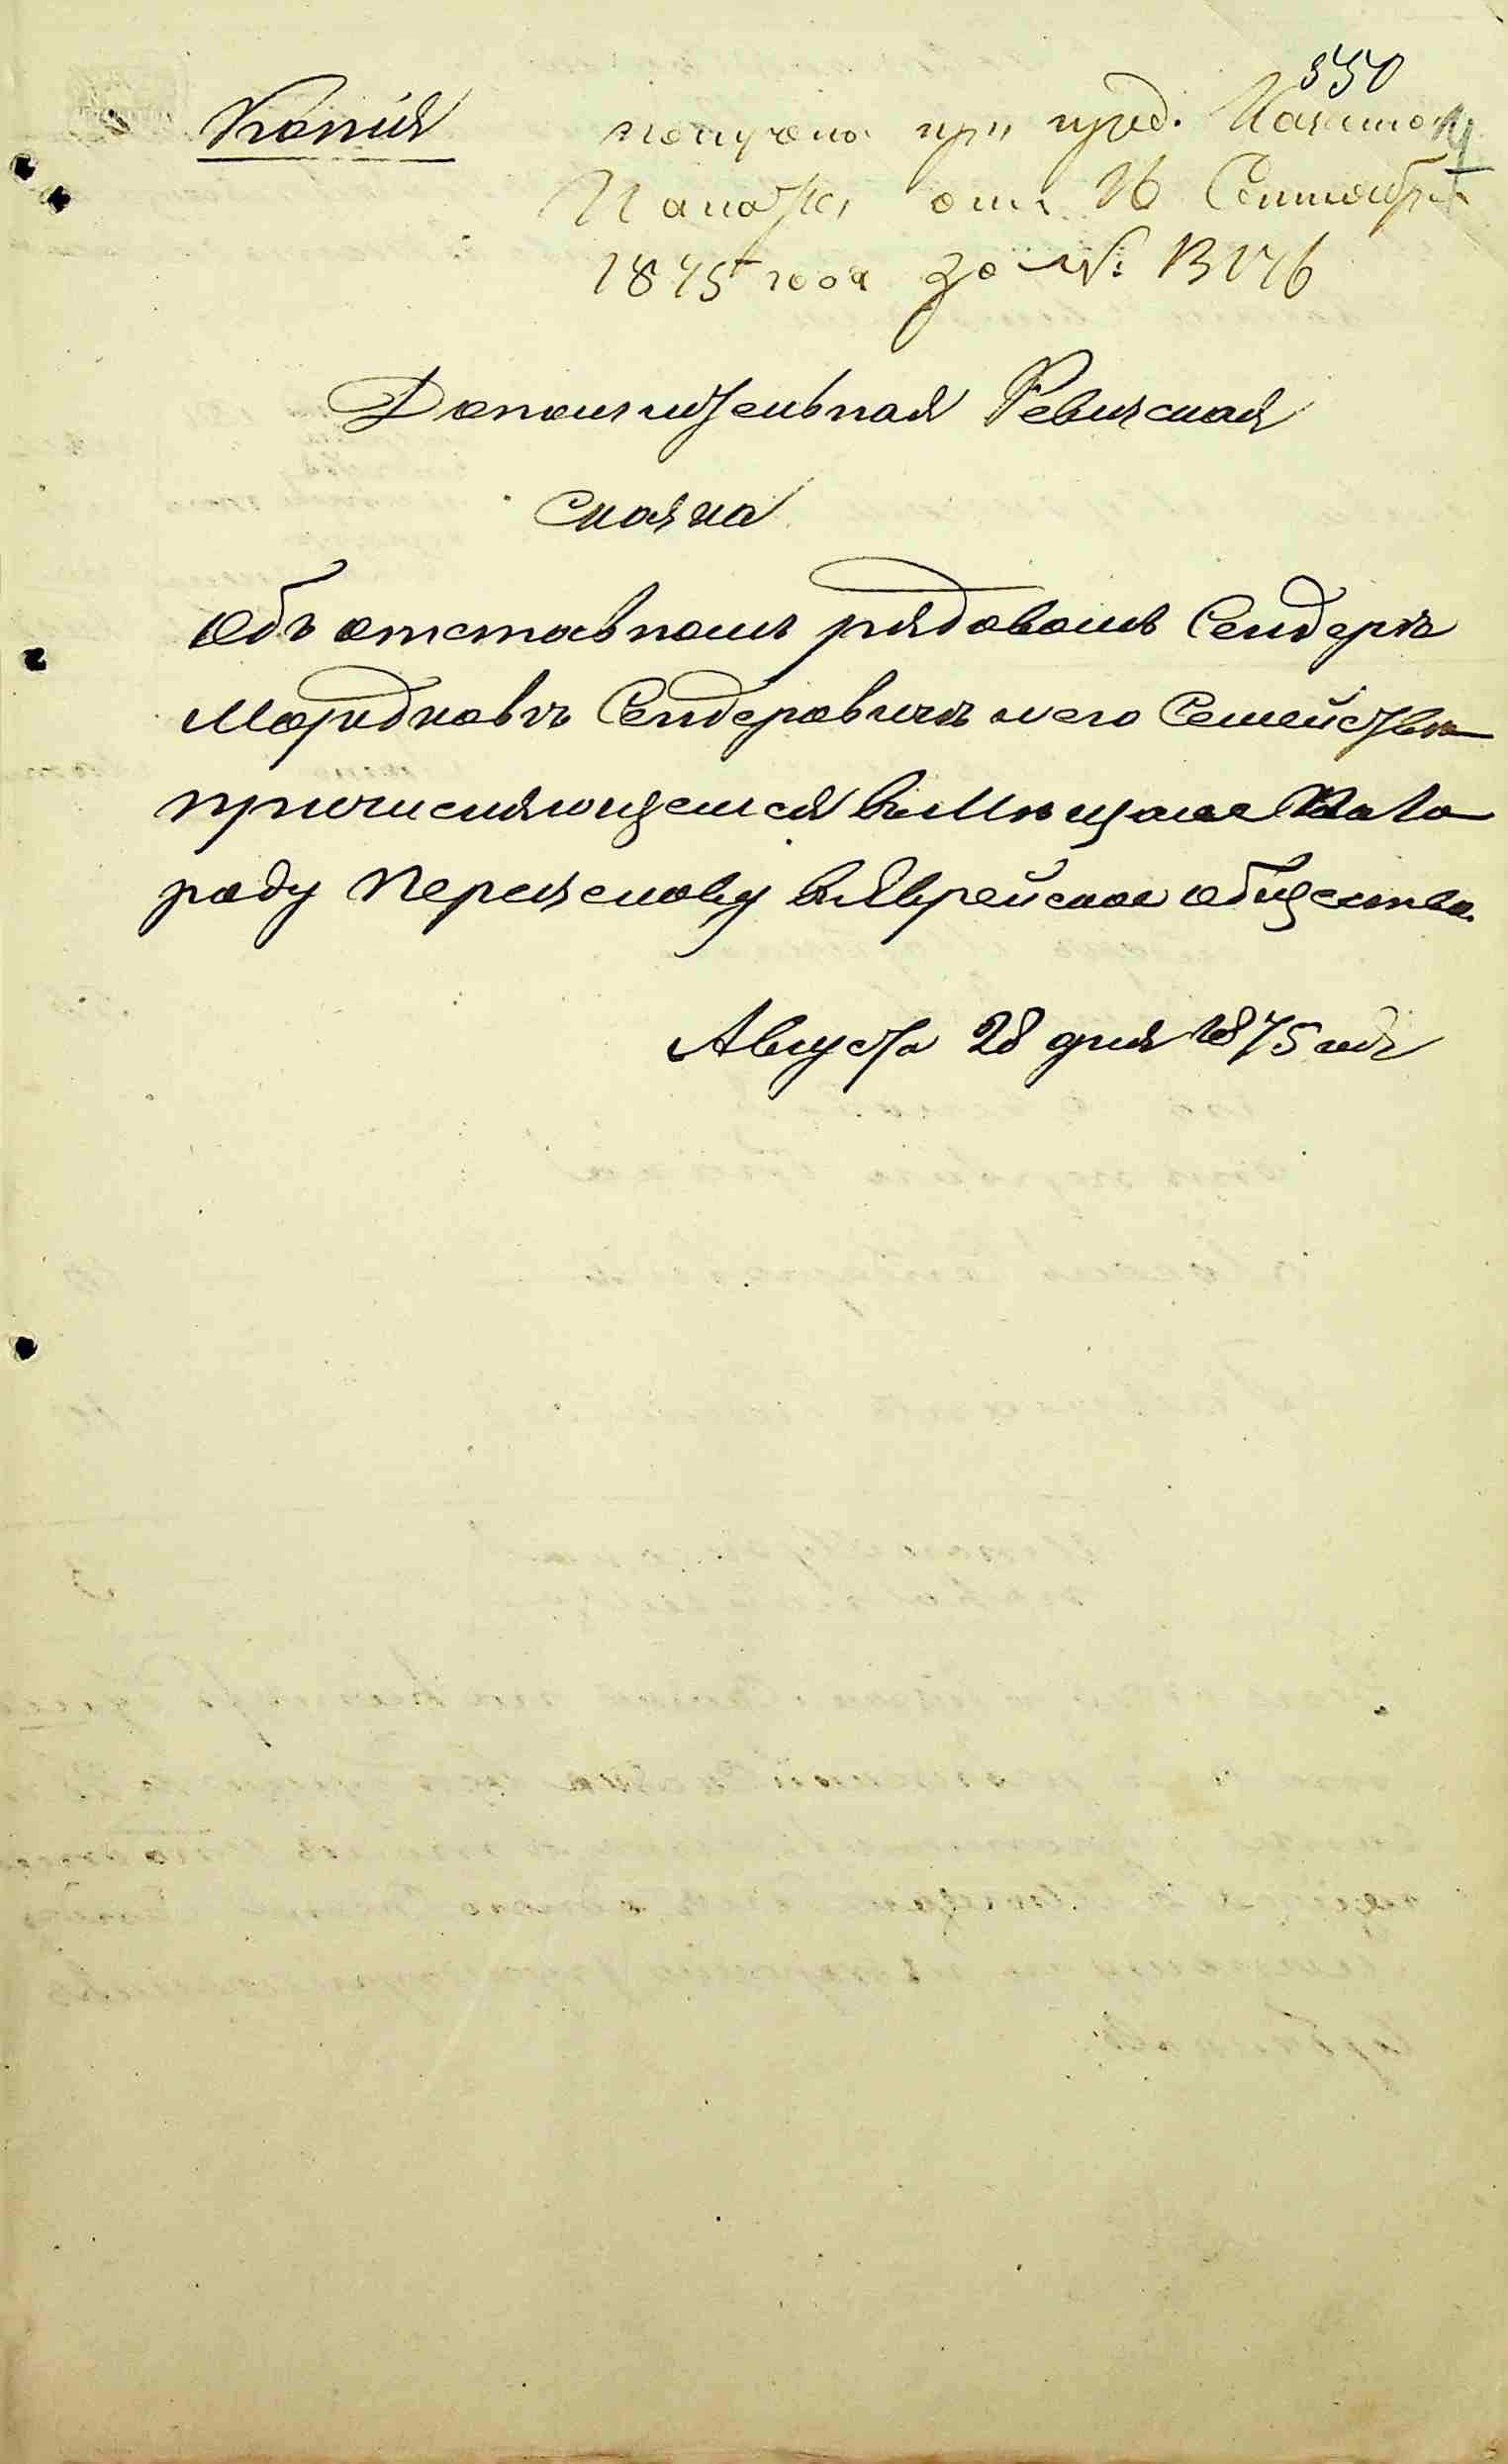 550
Копія
получено при пред. Казенной
Палаты отъ 16 Сентября
1875 года за №: 13176
Дополнительная Ревизская
сказка
Объ отставномъ рядовомъ Сендеръ
Мордковъ Сендеровичъ и его Семействѣ
причисляющемся въ Мѣщане
роду Переяславу въ Еврейское общество.
Августа 28 дня 1875 года